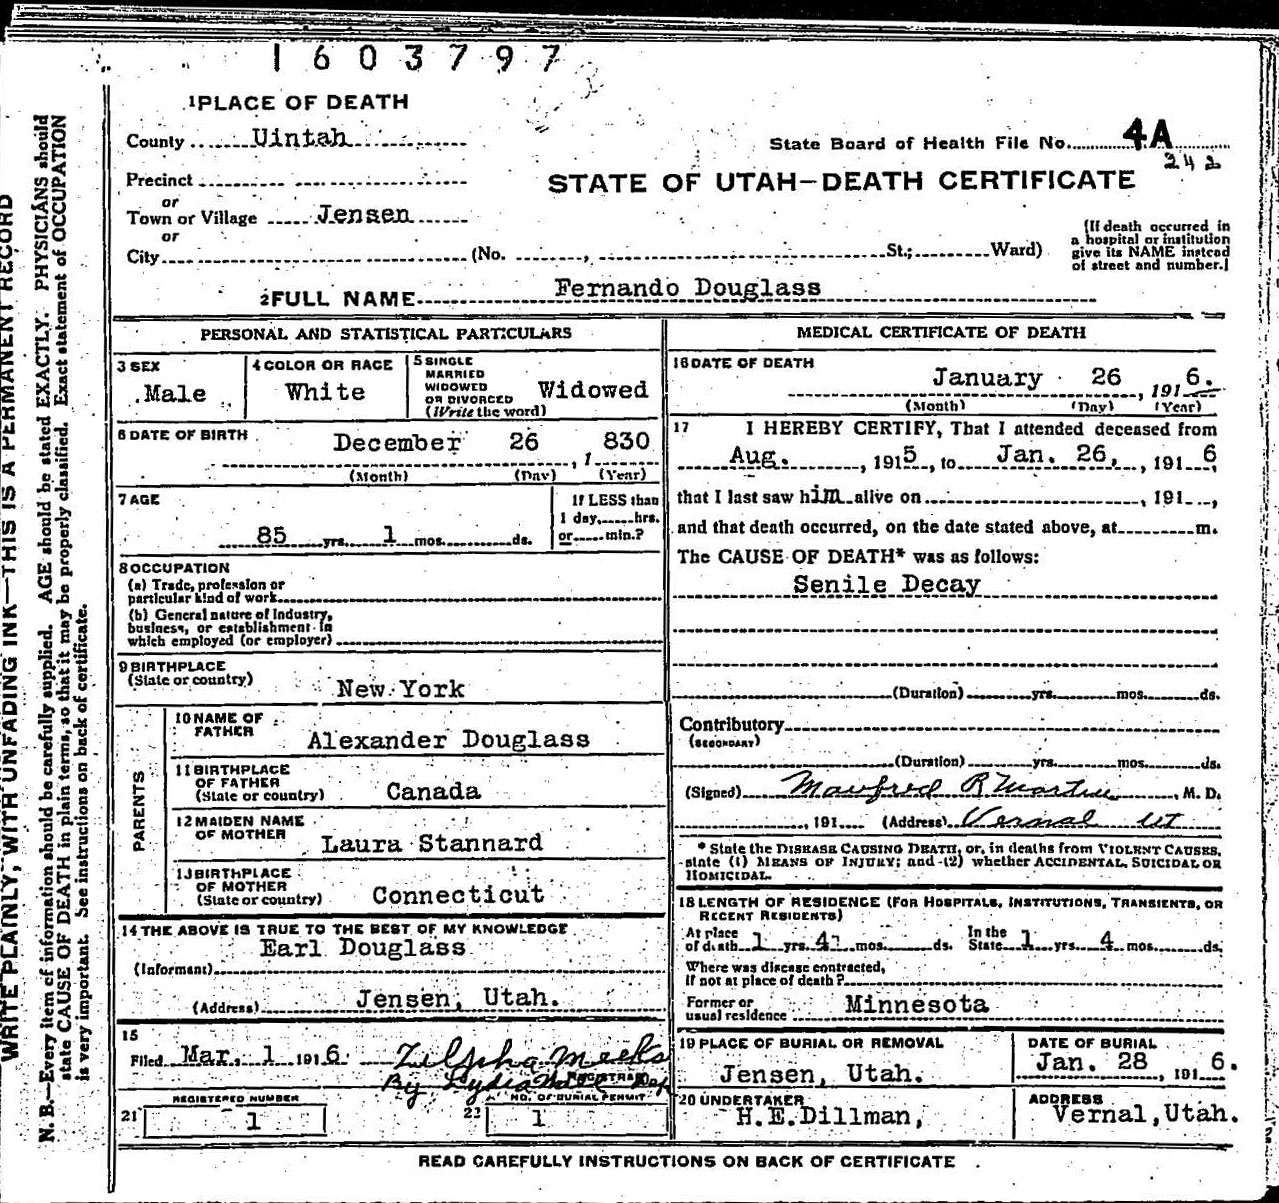 1603797
1 PLACE OF DEATH
County Uintah
State Board of Health File No. 4A
242
Precinct
or
Town or Village Jensen
or
City (No. , St.; Ward)
STATE OF UTAH—DEATH CERTIFICATE
(If death occurred in
a hospital or institution
give its NAME instead
of street and number.)
2 FULL NAME Fernando Douglass
PERSONAL AND STATISTICAL PARTICULARS
3 SEX
Male
4 COLOR OR RACE
White
5 SINGLE
MARRIED
WIDOWED
OR DIVORCED
(Write the word)
Widowed
6 DATE OF BIRTH
December 26 , 1 830
(Month) (Day) (Year)
7 AGE
85 yrs. 1 mos. ds.
If LESS than
1 day, hrs.
or min.?
8 OCCUPATION
(a) Trade, profession or
particular kind of work
(b) General nature of industry,
business, or establishment in
which employed (or employer)
9 BIRTHPLACE
(State or country)
New York
PARENTS
10 NAME OF
FATHER
Alexander Douglass
11 BIRTHPLACE
OF FATHER
(State or country)
Canada
12 MAIDEN NAME
OF MOTHER
Laura Stannard
13 BIRTHPLACE
OF MOTHER
(State or country)
Connecticut
14 THE ABOVE IS TRUE TO THE BEST OF MY KNOWLEDGE
Earl Douglass
(Informant)
(Address) Jensen, Utah.
15
Filed Mar. 1 1916 Zilpha Meeks
By Lydia Dep
REGISTRAR
REGISTERED NUMBER
21 1
NO. OF BURIAL PERMIT
22 1
MEDICAL CERTIFICATE OF DEATH
16 DATE OF DEATH
January 26 , 191 6.
(Month) (Day) (Year)
17 I HEREBY CERTIFY, That I attended deceased from
Aug. , 1915, to Jan. 26, , 191 6
that I last saw him alive on , 191 ,
and that death occurred, on the date stated above, at m.
The CAUSE OF DEATH* was as follows:
Senile Decay
(Duration) yrs. mos. ds.
Contributory
(SECONDARY)
(Duration) yrs. mos. ds.
(Signed) Manfred R Martin , M. D.
, 191 (Address) Vernal Ut
* State the DISEASE CAUSING DEATH, or, in deaths from VIOLENT CAUSES,
state (1) MEANS OF INJURY; and (2) whether ACCIDENTAL, SUICIDAL OR
HOMICIDAL.
18 LENGTH OF RESIDENCE (FOR HOSPITALS, INSTITUTIONS, TRANSIENTS, OR
RECENT RESIDENTS)
At place
of death 1 yrs. 4 mos. ds.
In the
State 1 yrs. 4 mos. ds.
Where was disease contracted,
if not at place of death?
Former or
usual residence Minnesota
19 PLACE OF BURIAL OR REMOVAL
Jensen, Utah.
DATE OF BURIAL
Jan. 28 , 191 6.
20 UNDERTAKER
H.E.Dillman,
ADDRESS
Vernal,Utah.
READ CAREFULLY INSTRUCTIONS ON BACK OF CERTIFICATE
WRITE PLAINLY, WITH UNFADING INK—THIS IS A PERMANENT RECORD
N. B.—Every item of information should be carefully supplied. AGE should be stated EXACTLY. PHYSICIANS should
state CAUSE OF DEATH in plain terms, so that it may be properly classified. Exact statement of OCCUPATION
is very important. See instructions on back of certificate.